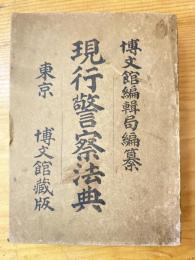 博文館編輯局編纂
現行警察法典
東京 博文館蔵版